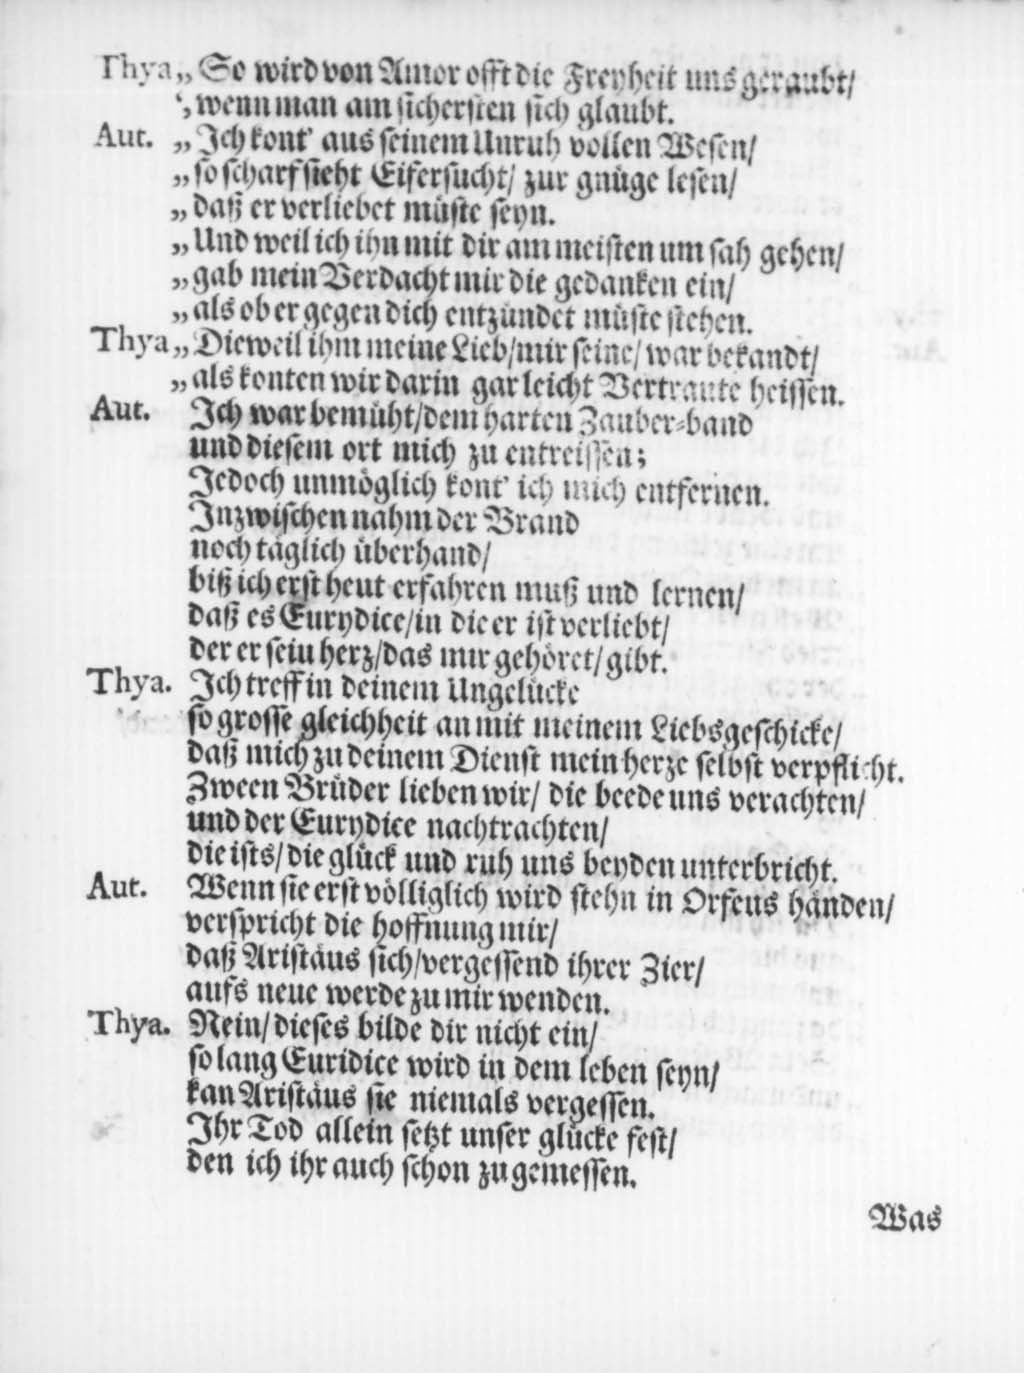 Thya„ So wird von Amor offt die Freyheit uns geraubt/
„wenn man am sichersten sich glaubt.
Aut. „ Ich kont' aus seinem Unruh vollen Wesen/
„ so scharf sieht Eifersucht/ zur gnüge lesen/
„ daß er verliebet müste seyn.
„ Und weil ich ihn mit dir am meisten um sah gehen/
„ gab mein Verdacht mir die gedanken ein/
„ als ob er gegen dich entzündet müste stehen.
Thya„ Dieweil ihm meine Lieb/mir seine/ war bekandt/
„ als konten wir darin gar leicht Vertraute heissen.
Aut. Ich war bemüht/dem harten Zauber-band
und diesem ort mich zu entreissen;
Jedoch unmöglich kont' ich mich entfernen.
Inzwischen nahm der Brand
noch täglich überhand/
biß ich erst heut erfahren muß und lernen/
daß es Eurydice/in die er ist verliebt/
der er sein herz/das mir gehöret/ gibt.
Thya. Ich treff in deinem Ungelücke
so grosse gleichheit an mit meinem Liebsgeschicke/
daß mich zu deinem Dienst mein herze selbst verpflicht.
Zween Brüder lieben wir/ die beede uns verachten/
und der Eurydice nachtrachten/
die ists/die glück und ruh uns beyden unterbricht.
Aut. Wenn sie erst völliglich wird stehn in Orfeus händen/
verspricht die hoffnung mir/
daß Aristäus sich/vergessend ihrer Zier/
aufs neue werde zu mir wenden.
Thya. Nein/ dieses bilde dir nicht ein/
so lang Euridice wird in dem leben seyn/
kan Aristäus sie niemals vergessen.
Ihr Tod allein setzt unser glücke fest/
den ich ihr auch schon zugemessen.
Was